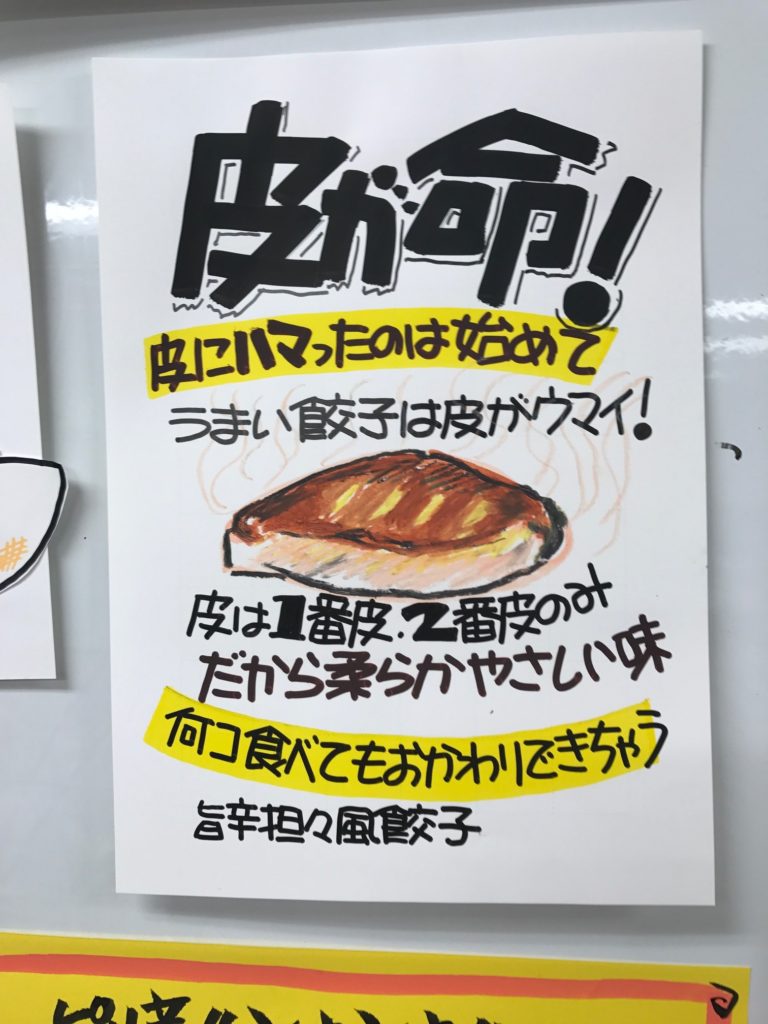 皮が命!
皮にハマったのは始めて
うまい餃子は皮がウマイ!
皮は1番皮.2番皮のみ
だから柔らかやさしい味
何コ食べてもおかわりできちゃう
旨辛担々風餃子